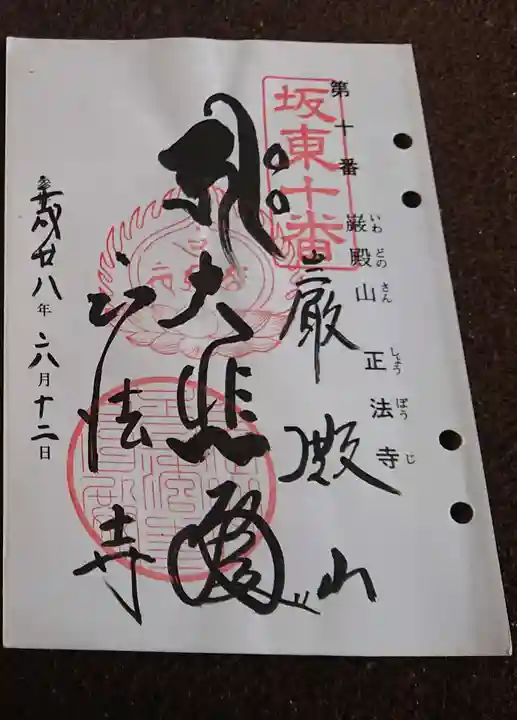 第十番
巌殿山 正法寺
いわ どの さん しょう ぼう じ
坂東十番
巌殿山
大悲殿
正法寺
平成廿八年 六月十二日